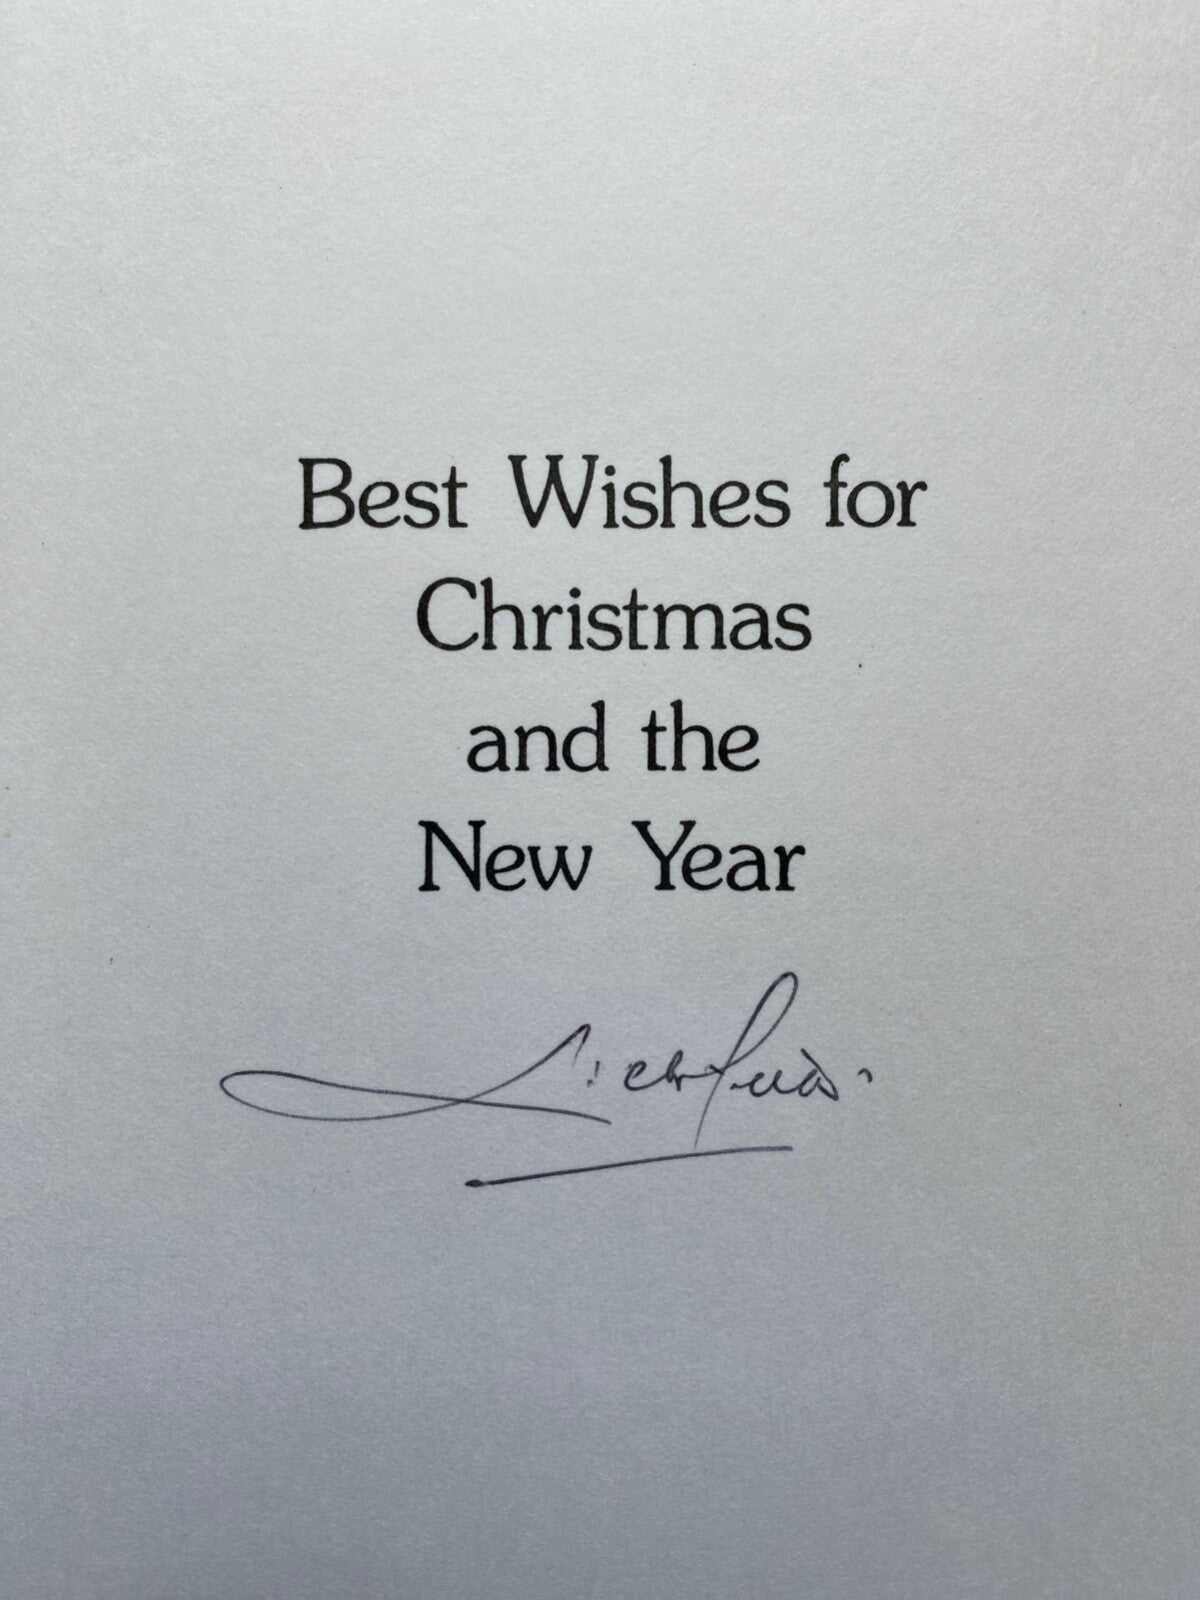 Best Wishes for
Christmas
and the
New Year